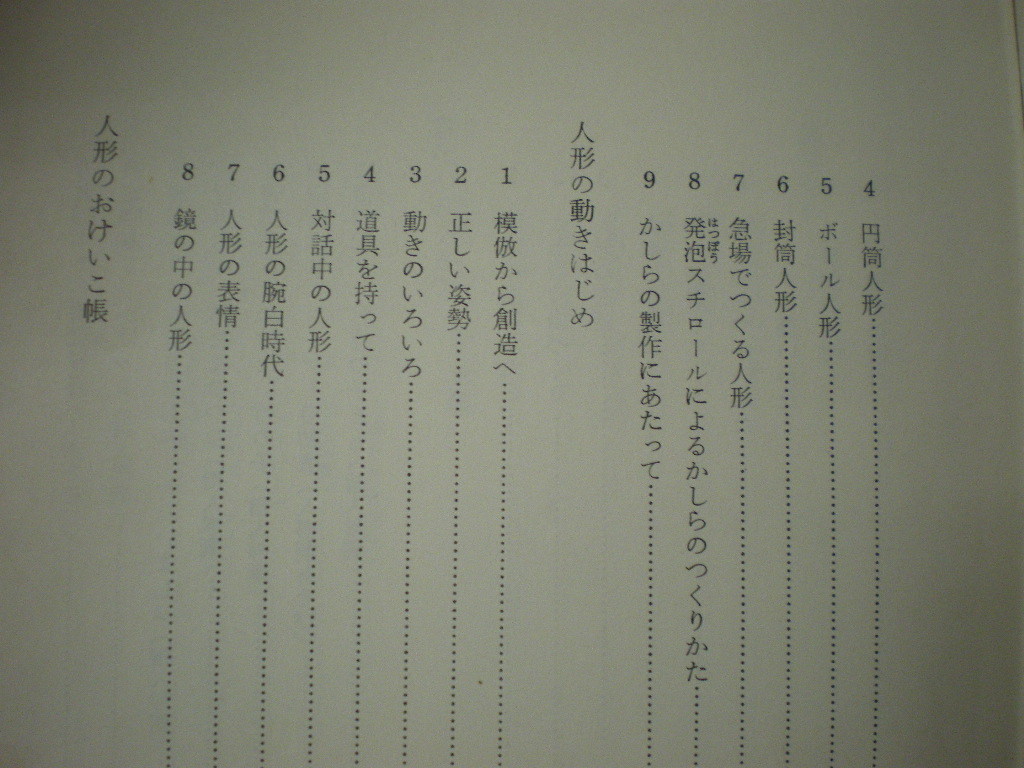 4 円筒人形
5 ボール人形
6 封筒人形
7 急場でつくる人形
8 発泡スチロールによるかしらのつくりかた
はっぽう
9 かしらの製作にあたって
人形の動きはじめ
1 模倣から創造へ
2 正しい姿勢
3 動きのいろいろ
4 道具を持って
5 対話中の人形
6 人形の腕白時代
7 人形の表情
8 鏡の中の人形
人形のおけいこ帳